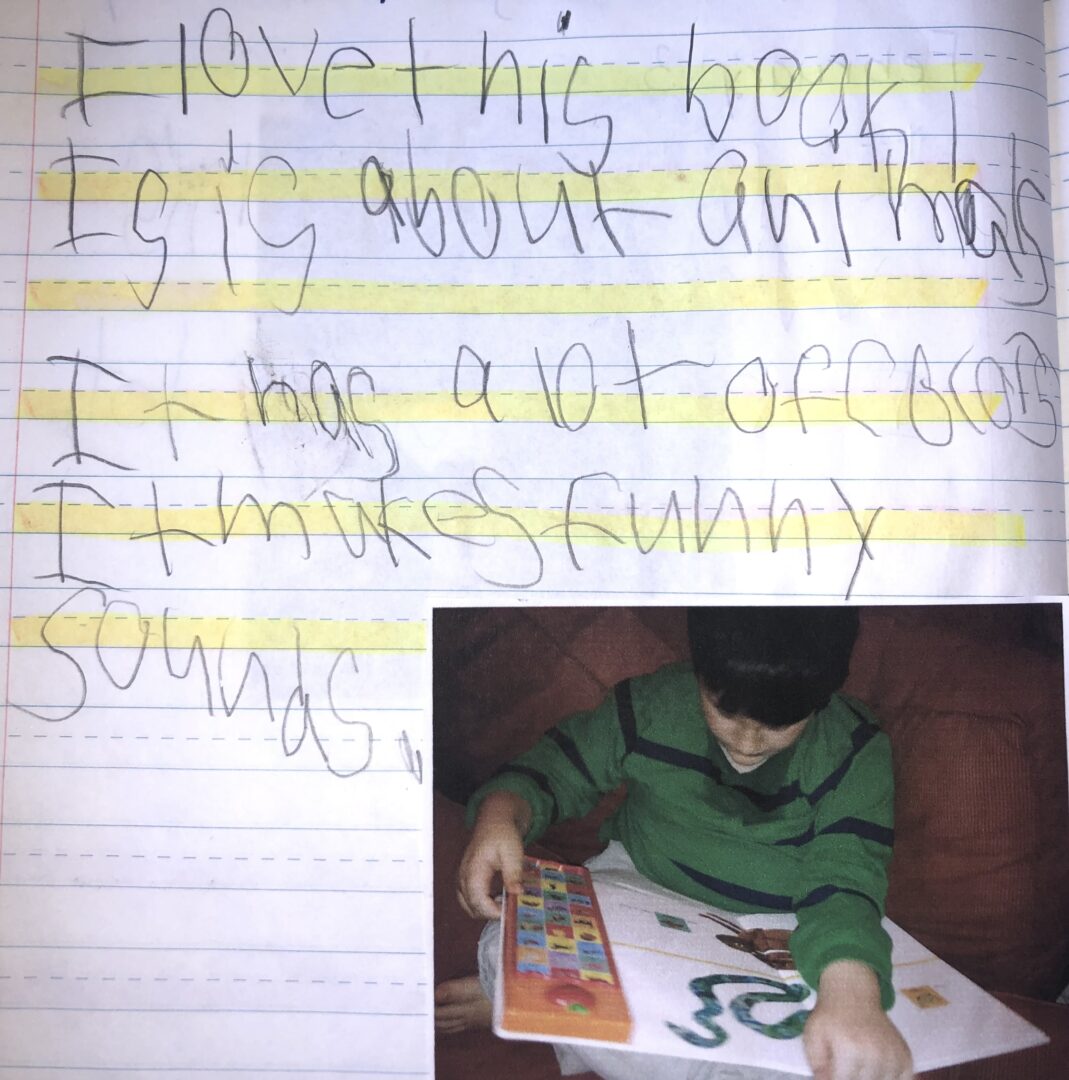 I love this book
Is is about animals
It has a lot of
It makes funny
sounds.